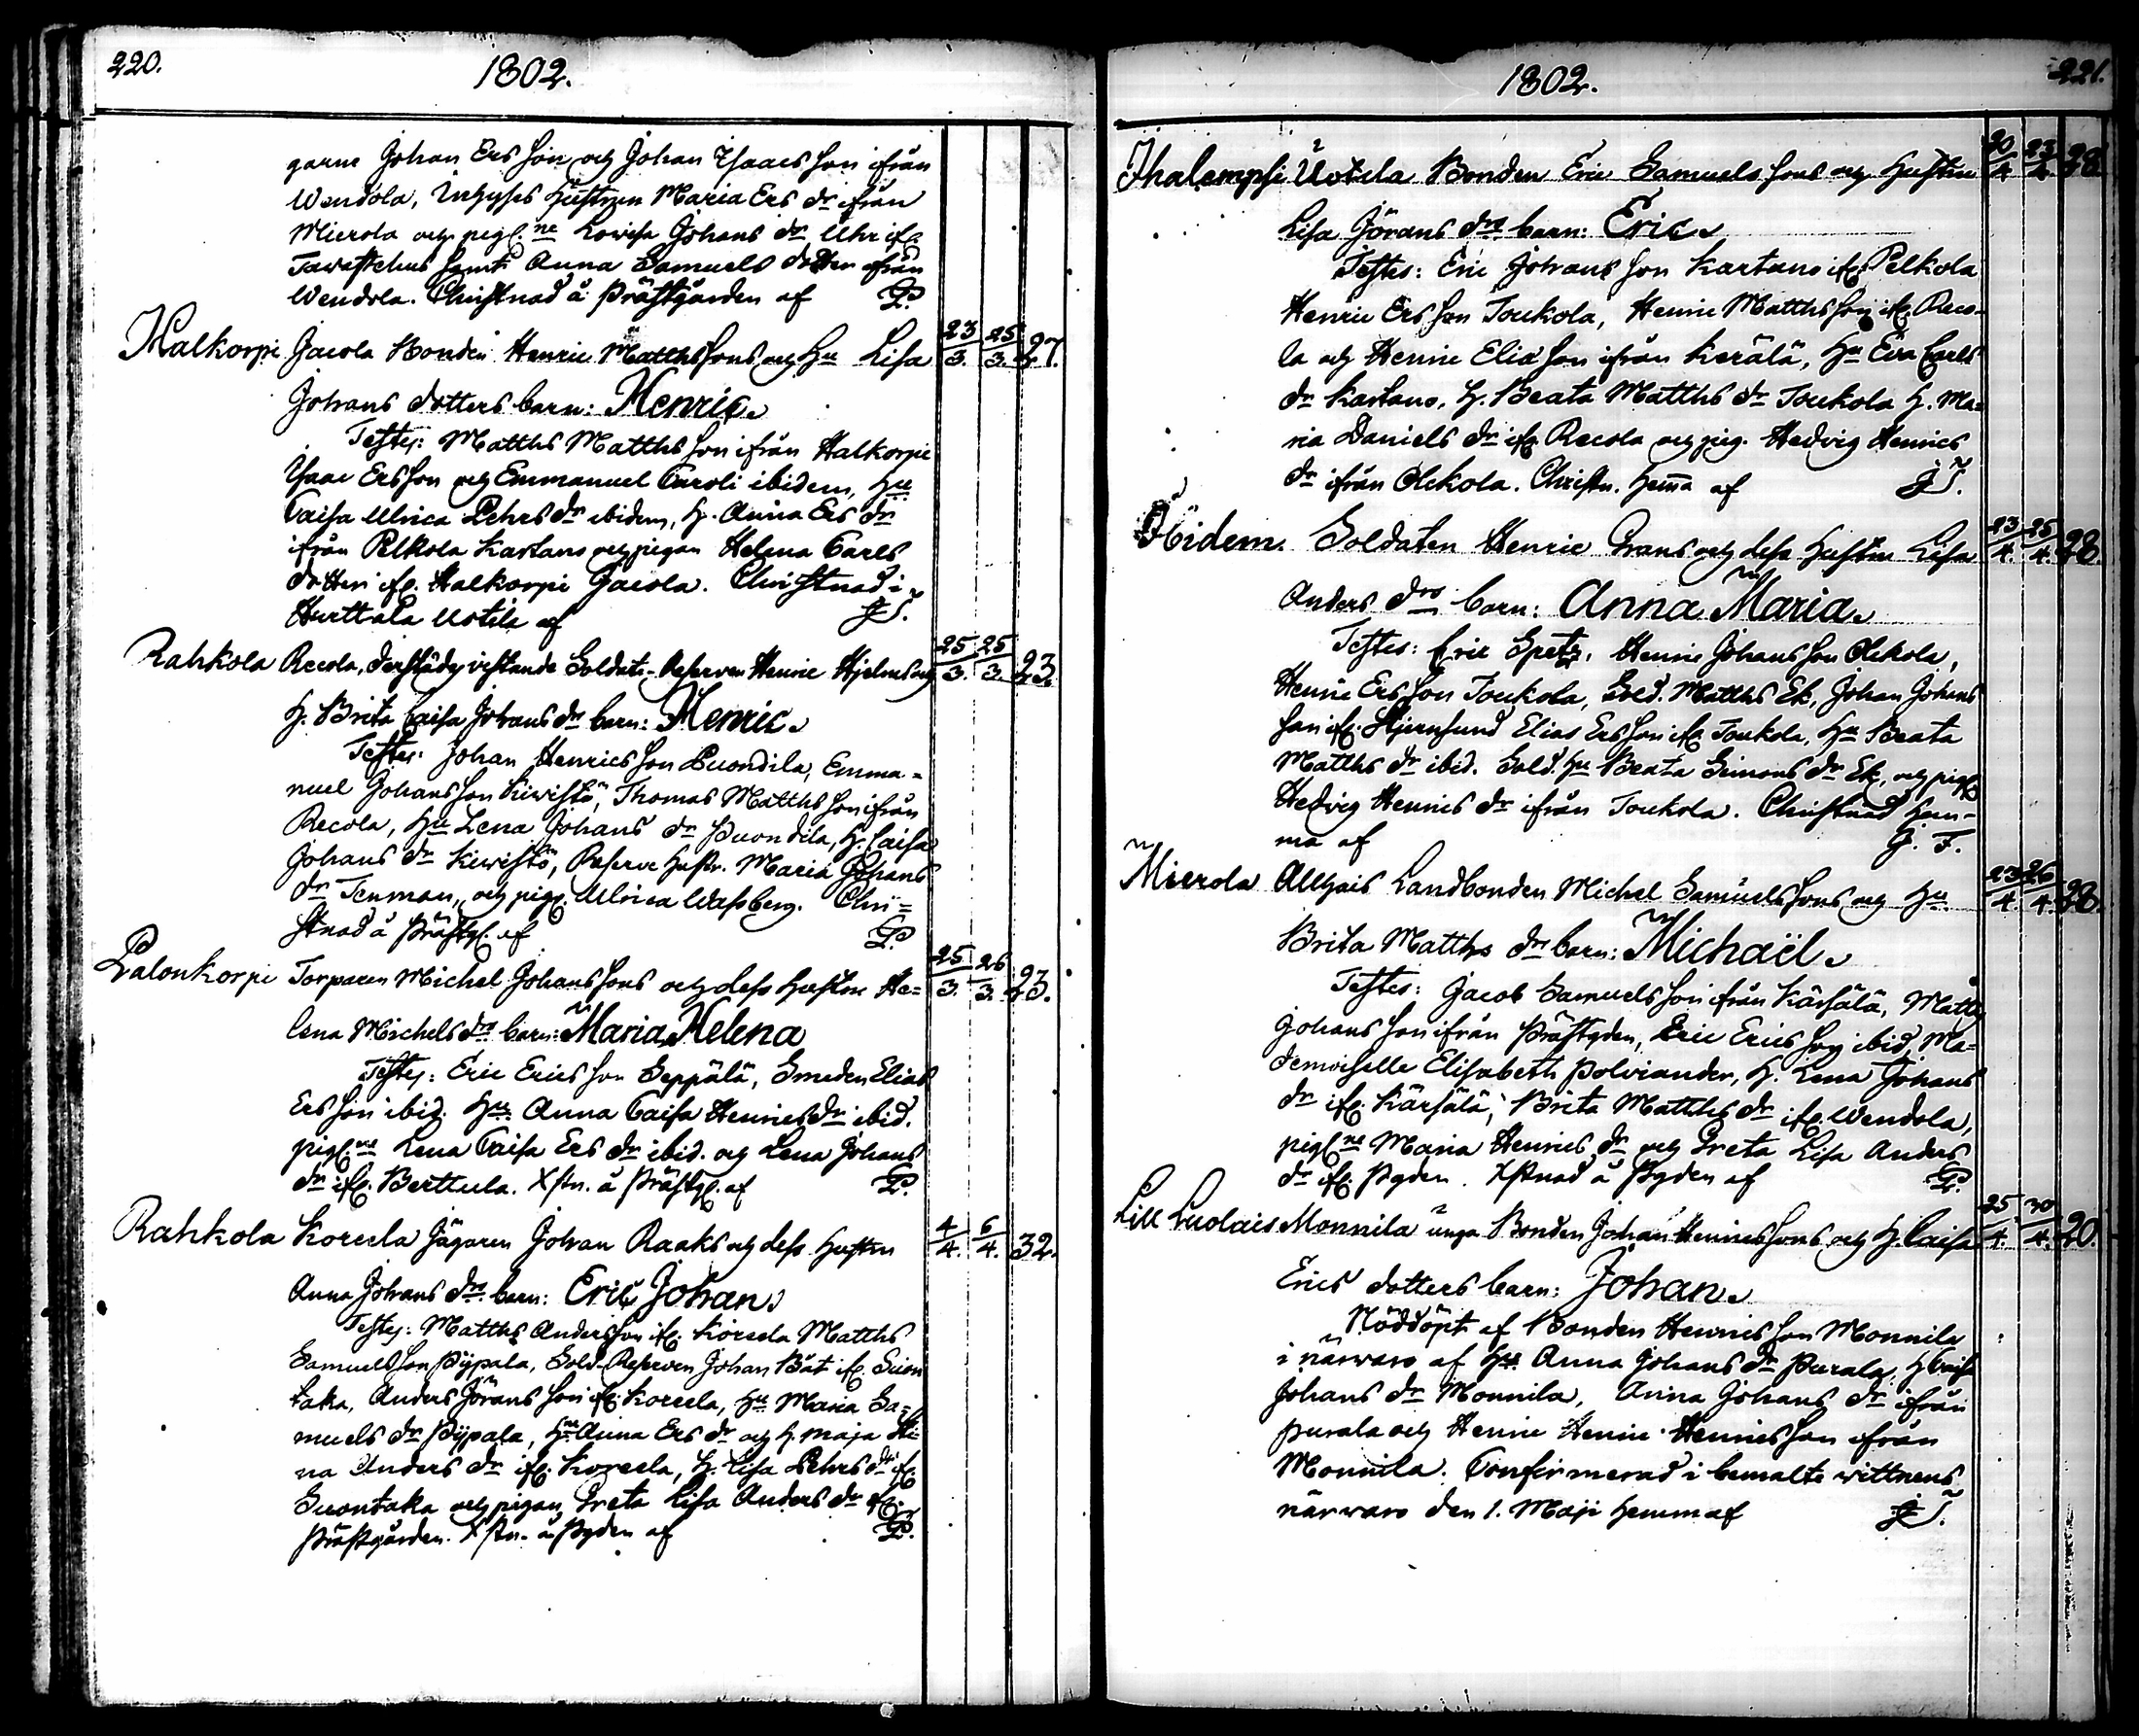 220.
1802.
garne Johan Ersson och Johan Isaacsson ifrån
Wendola, Inhyses Hustrun Maria Ers dr ifrån
Mierola och pig.ne Lowisa Johans dr Uhr if.
Tawastehus samt Anna Samuels dotter ifrån
Wendola. Christnad å Prästgården af P.
Halkorpi Jacola Bonden Henric Matthssons och Hu Lisa 23/3. 25/3. 27.
Johans dotters barn: Henric.
Testes: Matths Matthsson ifrån Halkorpi
Isaac Ersson och Emmanuel Caroli ibidem, Hu
Caisa Ulrica Pehrs dr ibidem, H. Anna Ers dr
ifrån Pelkola Kartano och pigan Helena Carls
dotter if. Halkorpi Jacola. Christnad i
Hurttala Ustila af
Rahkola Recola, derstädes vistande Soldats-Reserven Henric Hjelms och 25/3. 25/3. 23.
H. Brita Caisa Johans dr barn: Henric.
Testes: Johan Henricsson Puondila, Emma-
nuel Johansson Kiwistö, Thomas Matthsson ifrån
Recola, Hu Lena Johans dr Puondila, H. Caisa
Johans dr Kiwistö, Reserve Hustr. Maria Johans
dr Tenman, och pig. Ulrica Wassberg. Chri=
stnad å Prästg. af P.
Lalonkorpi Torparen Michel Johanssons och dess Hustru He= 25/3. 26/3. 23.
lena Michels drs barn: Maria Helena
Testes: Eric Ericsson Seppälä, Smeden Elias
Ersson ibid. Hu Anna Caisa Henrics dr ibid.
pig.ne Lena Caisa Ers dr ibid. och Lena Johans
dr if. Berttula. Xstn. å Prästg. af P.
Rahkola Korcela Jägaren Johan Raaks och dess Hustru 4/4. 6/4. 32.
Anna Johans drs barn: Eric Johan.
Testes: Matths Andersson if. Korcela Matths
Samuelsson Pijpala, Sold. Reserven Johan Båt if. Suon
taka, Anders Jöransson if. Korcela, Hu Maria Sa=
muels dr Pijpala, Hu Anna Ers dr och H. Maja Sti=
na Anders dr if. Korcela, H. Lisa Pehrs dr if.
Suontaka och pigan Greta Lisa Anders dr if.
Prästgården. Xstn. å Pgden af P.
1802.
221.
Ihalempsi Uotila Bonden Eric Samuelssons och Hustru 20/4. 23/4. 28
Lisa Jörans drs barn: Eric.
Testes: Eric Johansson Kartano if. Pelkola
Henric Ersson Toukola, Henric Matthsson if. Reco-
la och Henric Eliasson ifrån Kerälä, Hu Eva Carls
dr Kartano, H. Beata Matths dr Toukola H. Ma=
ria Daniels dr if. Recola och pig. Hedvig Henrics
dr ifrån Olekola. Christn. hema af
Ibidem. Soldaten Henric Grans och dess Hustru Lisa 23/4. 25/4. 28.
Anders drs barn: Anna Maria.
Testes: Eric Spets, Henric Johansson Olekola,
Henric Ersson Toukola, Sold. Matths Ek, Johan Johans
son if. Stjernsund Elias Ersson if. Toukola, Hu Beata
Matths dr ibid. Sold. Hu Beata Simons dr Ek, och pig.
Hedvig Henrics dr ifrån Toukola. Christnad hem-
ma af G. F.
Mierola Alhais Landbonden Michel Samuelssons och Hu 23/4. 26/4. 28.
Brita Matths drs barn: Michaël.
Testes: Jacob Samuelsson ifrån Kärsälä, Matths
Johansson ifrån Prästgden, Eric Ericsson ibid, Ma=
demoiselle Elisabeth Polviander, H. Lena Johans
dr if. Kärsälä, Brita Matths dr if. Wendola,
pig.ne Maria Henrics dr och Greta Lisa Anders
dr if. Pgden. Xstnad å Pgden af P.
Lill Luolais Monnila unga Bonden Johan Henricssons och H. Caisa 25/4. 30/4. 20.
Erics dotters barn: Johan.
Nöddöpt af Bonden Henricsson Monnila
i närwaro af Hu Anna Johans dr Purala, H Caisa
Johans dr Monnila, Anna Johans dr ifrån
Purala och Henric Henric Henricsson ifrån
Monnila. Confirmerad i bemälte wittnens
närwaro den 1. Maji hemm af